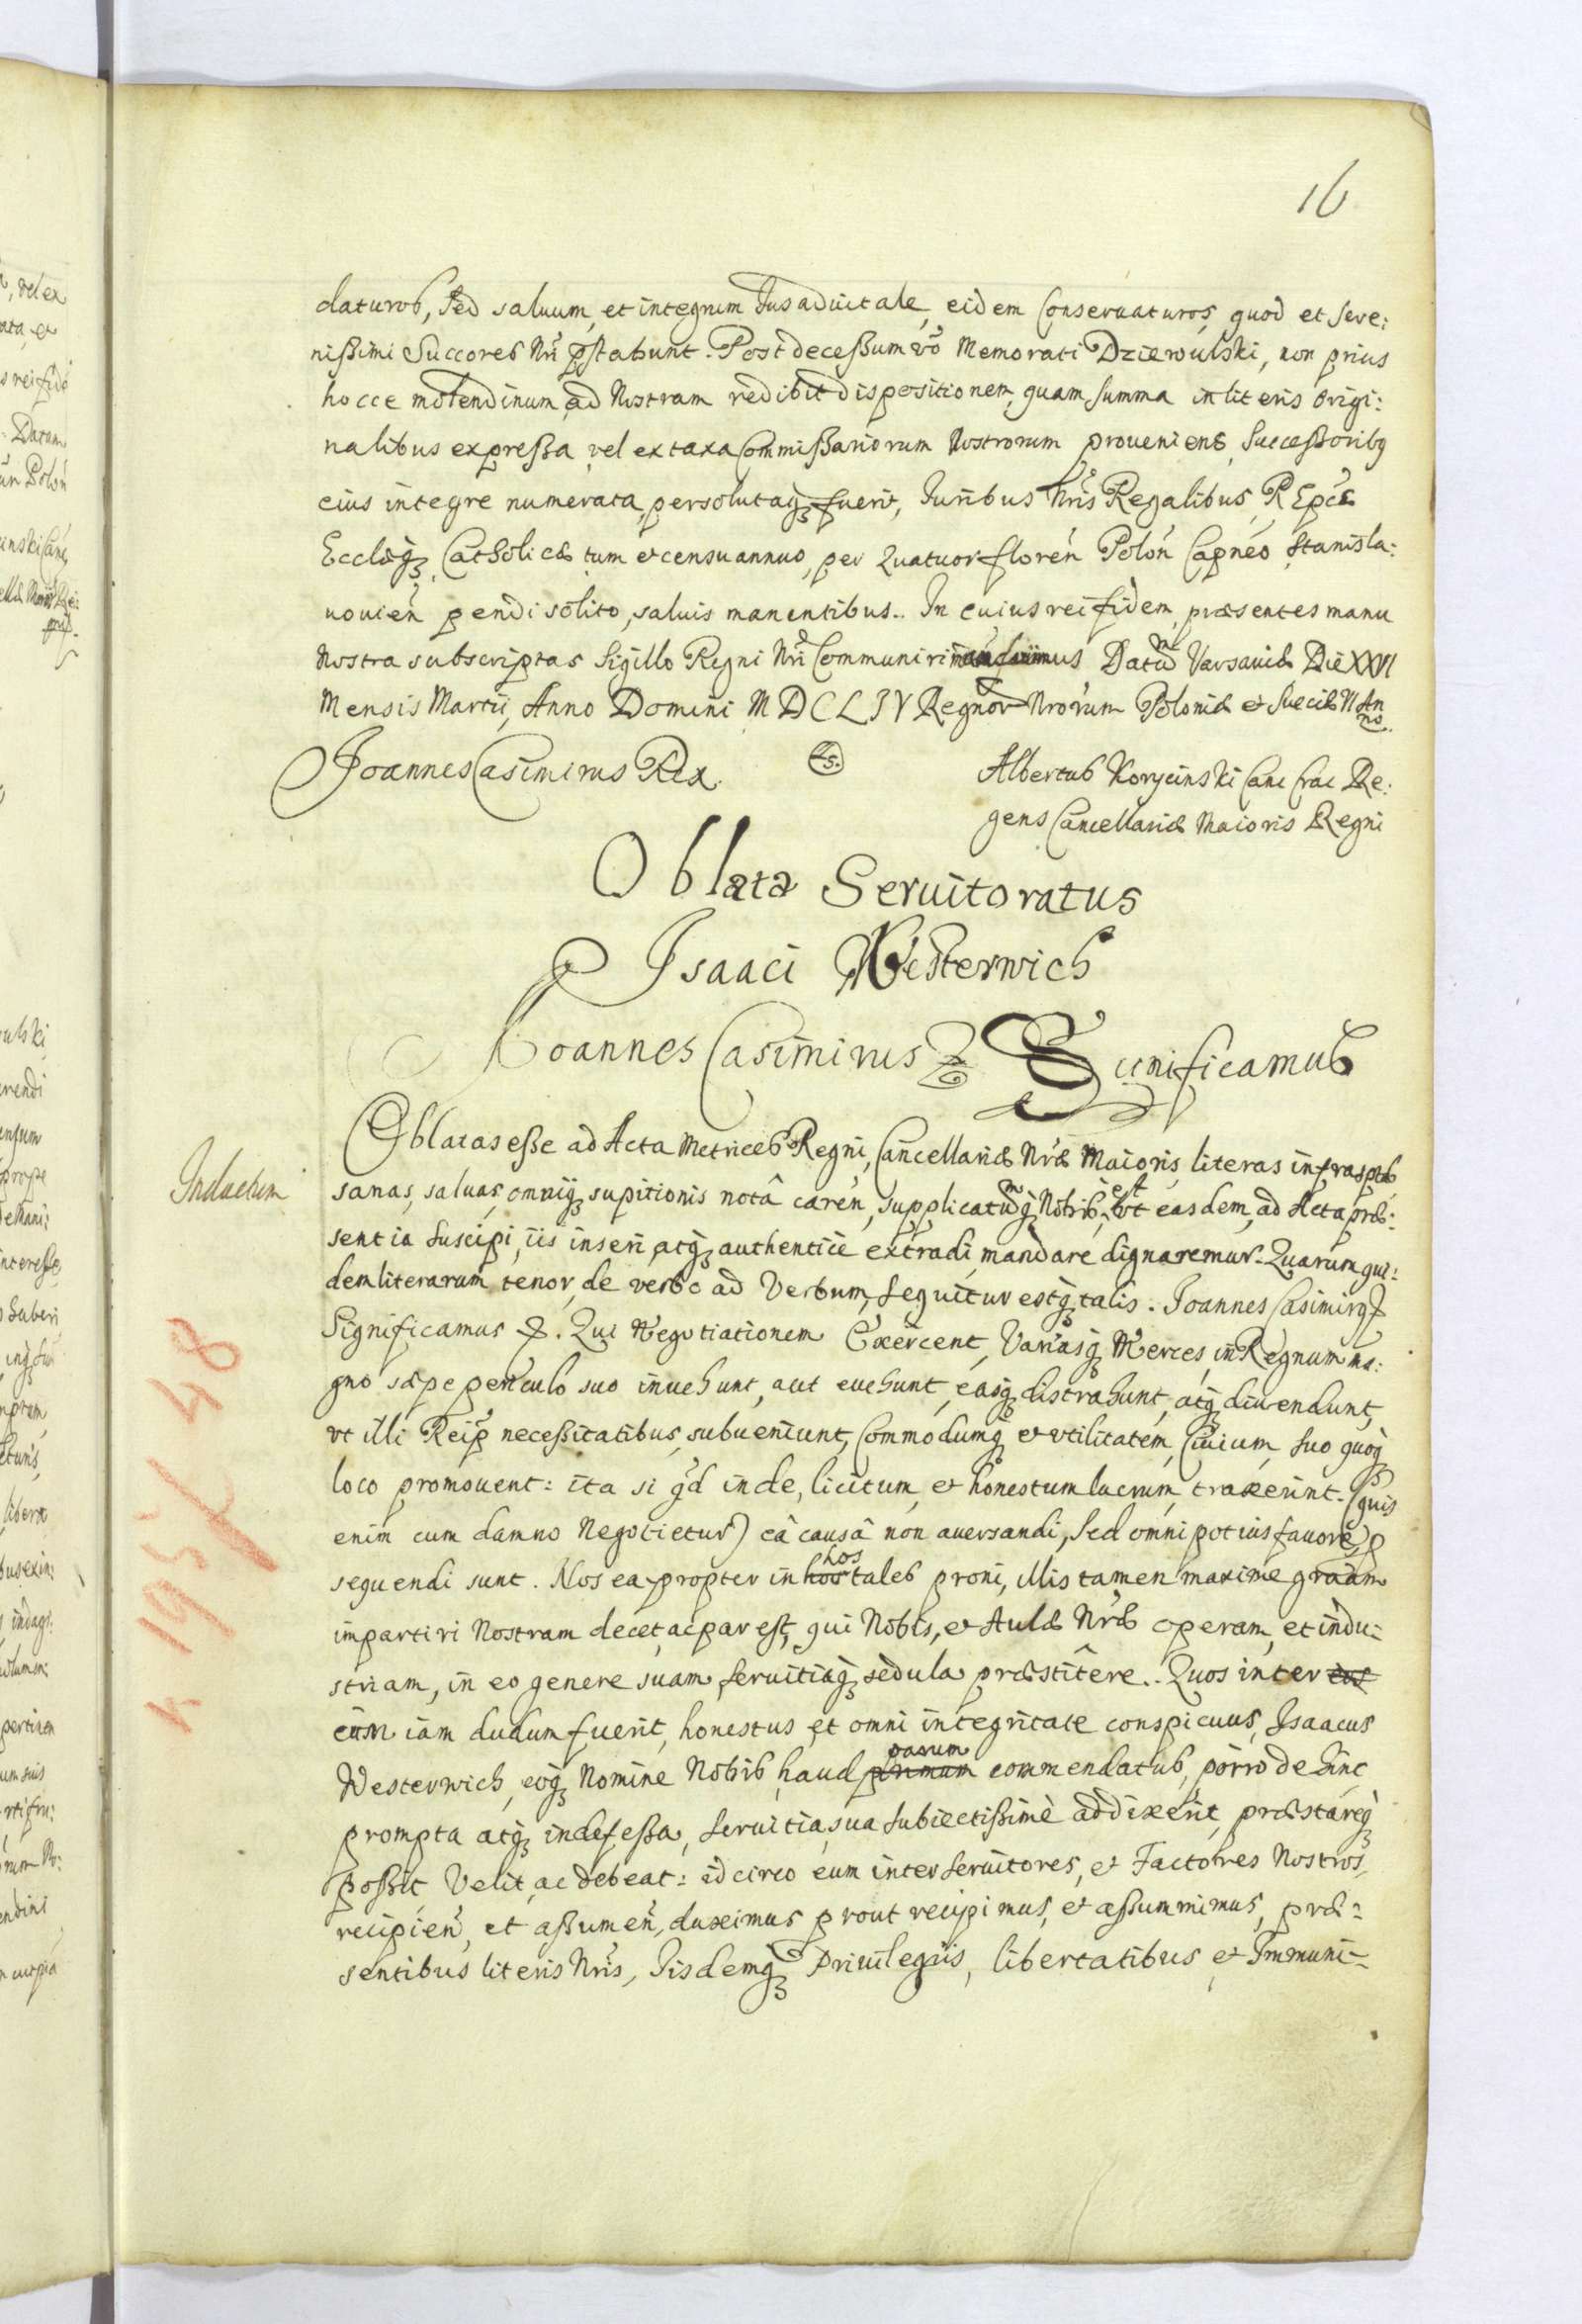 16
daturos, sed saluum, et integrum Jus aduitale, eidem Conseruaturos, quod et Sere:
nißimi Succores Nri pstabunt. Post deceßum vo Memorati Dziewulski, non prius
hocce molendinum ad Nostram redibit dispositionem, quam summa in literis Origi:
nalibus expreßa vel ex taxa Commißariorum Nostrorum proueniens Succeßoribq
eius integre numerata, persolutaq fuerit, Juribus Nris Regalibus, R Epcæ
Ecclæq Catholicæ tum et censu annuo, per Quatuor floren Polon Capneo Stanisla:
uouien pendi solito, saluis manentibus. In cuius rei fidem, præsentes manu
Nostra subscriptas Sigillo Regni Nri Communiri mandauimus Datum Varsauiæ Die XXVI
Mensis Martii, Anno Domini MDCLIV Regnor Nrorum Poloniæ et Sueciæ VI An
no.
Joannes Casimirus Rex.
Ls.
Albertus Koryciński Canc Crac Re:
gens Cancellariæ Maioris Regni
Oblata Seruitoratus
P Isaaci Westerwich
Joannes Casimirus Significamus
Inductum
Oblatas eße ad Acta Metrices Regni, Cancellariæ Nræ Maioris, literas infrasptas
sanas, saluas, omniq supitionis notâ caren, supplicatumq Nobis est, vt easdem, ad Acta præ:
sentia Suscipi, iis inseri, atq authentice extradi, mandare dignaremur. Quarum qui:
dem literarum tenor, de verbo ad Verbum, Sequitur estq talis. Joannes Casimirq
Significamus. Qui Negotiationem Exercent, Variasq Merces, in Regnum ma:
gno sæpe periculo suo inuehunt, aut euehunt, easq distrahunt, atq diuendunt,
vt illi Reip necessitatibus, subueniunt, Commodumq et vtilitatem, Ciuium suo quoq
loco promouent: ita si qd inde, licitum, et honestum lucrum, traxerint. (quis
enim cum damno Negotietur) eâ causâ non auersandi, Sed omni potius fauore, p
sequendi sunt. Nos ea propter in hos tales proni, illis tamen maxime gratiam
impartiri Nostram decet, ac par est, qui Nobis, et Aulæ Nræ operam, et indu:
striam, in eo genere suam, Seruitiaq sedula præstitêre. Quos inter eos
cum iam dudum fuerit, honestus, et omni integritate conspicuus, Isaacus
Westerwich, eoq Nomine Nobis, haud primum parum commendatus, porro de hinc
prompta atq indefeßa, Seruitia, sua Subiectißimè addixerit, præstareq
poßit Velit, ac debeat: idcirco eum inter Seruitores, et Factores Nostros,
recipien, et aßumen, duximus prout recipimus, et aßummimus, præ:
sentibus literis Nris, Iisdemq Priuilegiis, libertatibus, et Immuni-